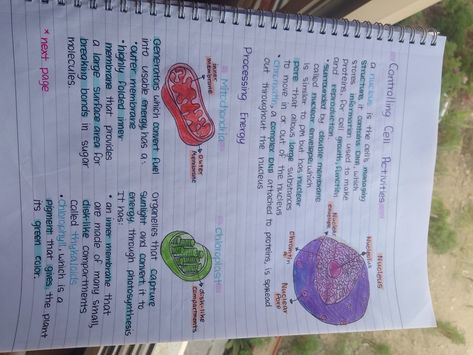 Controlling Cell Activities
a nucleus is the cell's managing
structure, it contains DNA, which
stores information used to make
proteins, for cell growth, function
and reproduction.
• surrounded by double membrane
called nuclear envelope, which
is similar to PM but has nuclear
pore that allows large substances
to move in or out of the nucleus
• chromatin; a complex DNA attached to proteins, is spread
out throughout the nucleus
Nucleus
Nucleolus
Nuclear
envelope
Chromatin
Nuclear
Pore
Processing Energy
Mitochondria
Inner
Membrane
Outer
Membrane
Generators which convert fuel
into usable energy, has a:
• outer membrane
• highly folded inner
membrane that provides
a large surface area for
breaking bonds in sugar
molecules
* next page
Chloroplast
disk-like
compartments
Organelles that capture
sunlight and convert it to
energy through photosynthesis
It has:
• an inner membrane that
are made of many small,
disk-like compartments
called thylakoids
• chlorophyll, which is a
pigment that gives the plant
its green color.